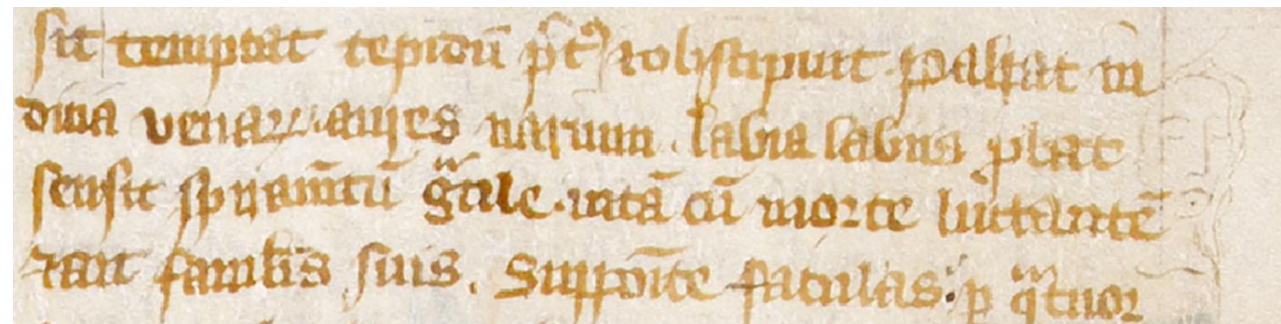 sit temptat tepidū p̄ct⁹ ⁊ obstipuit . Palpat in
dicia venaꝝ . aures narium . labia labiis ꝓbat
sensit spiramtū gͣcile . uitā cū morte luctantē
⁊ ait famuĺis suis . Supponite faculas : ꝑ qͣtuor